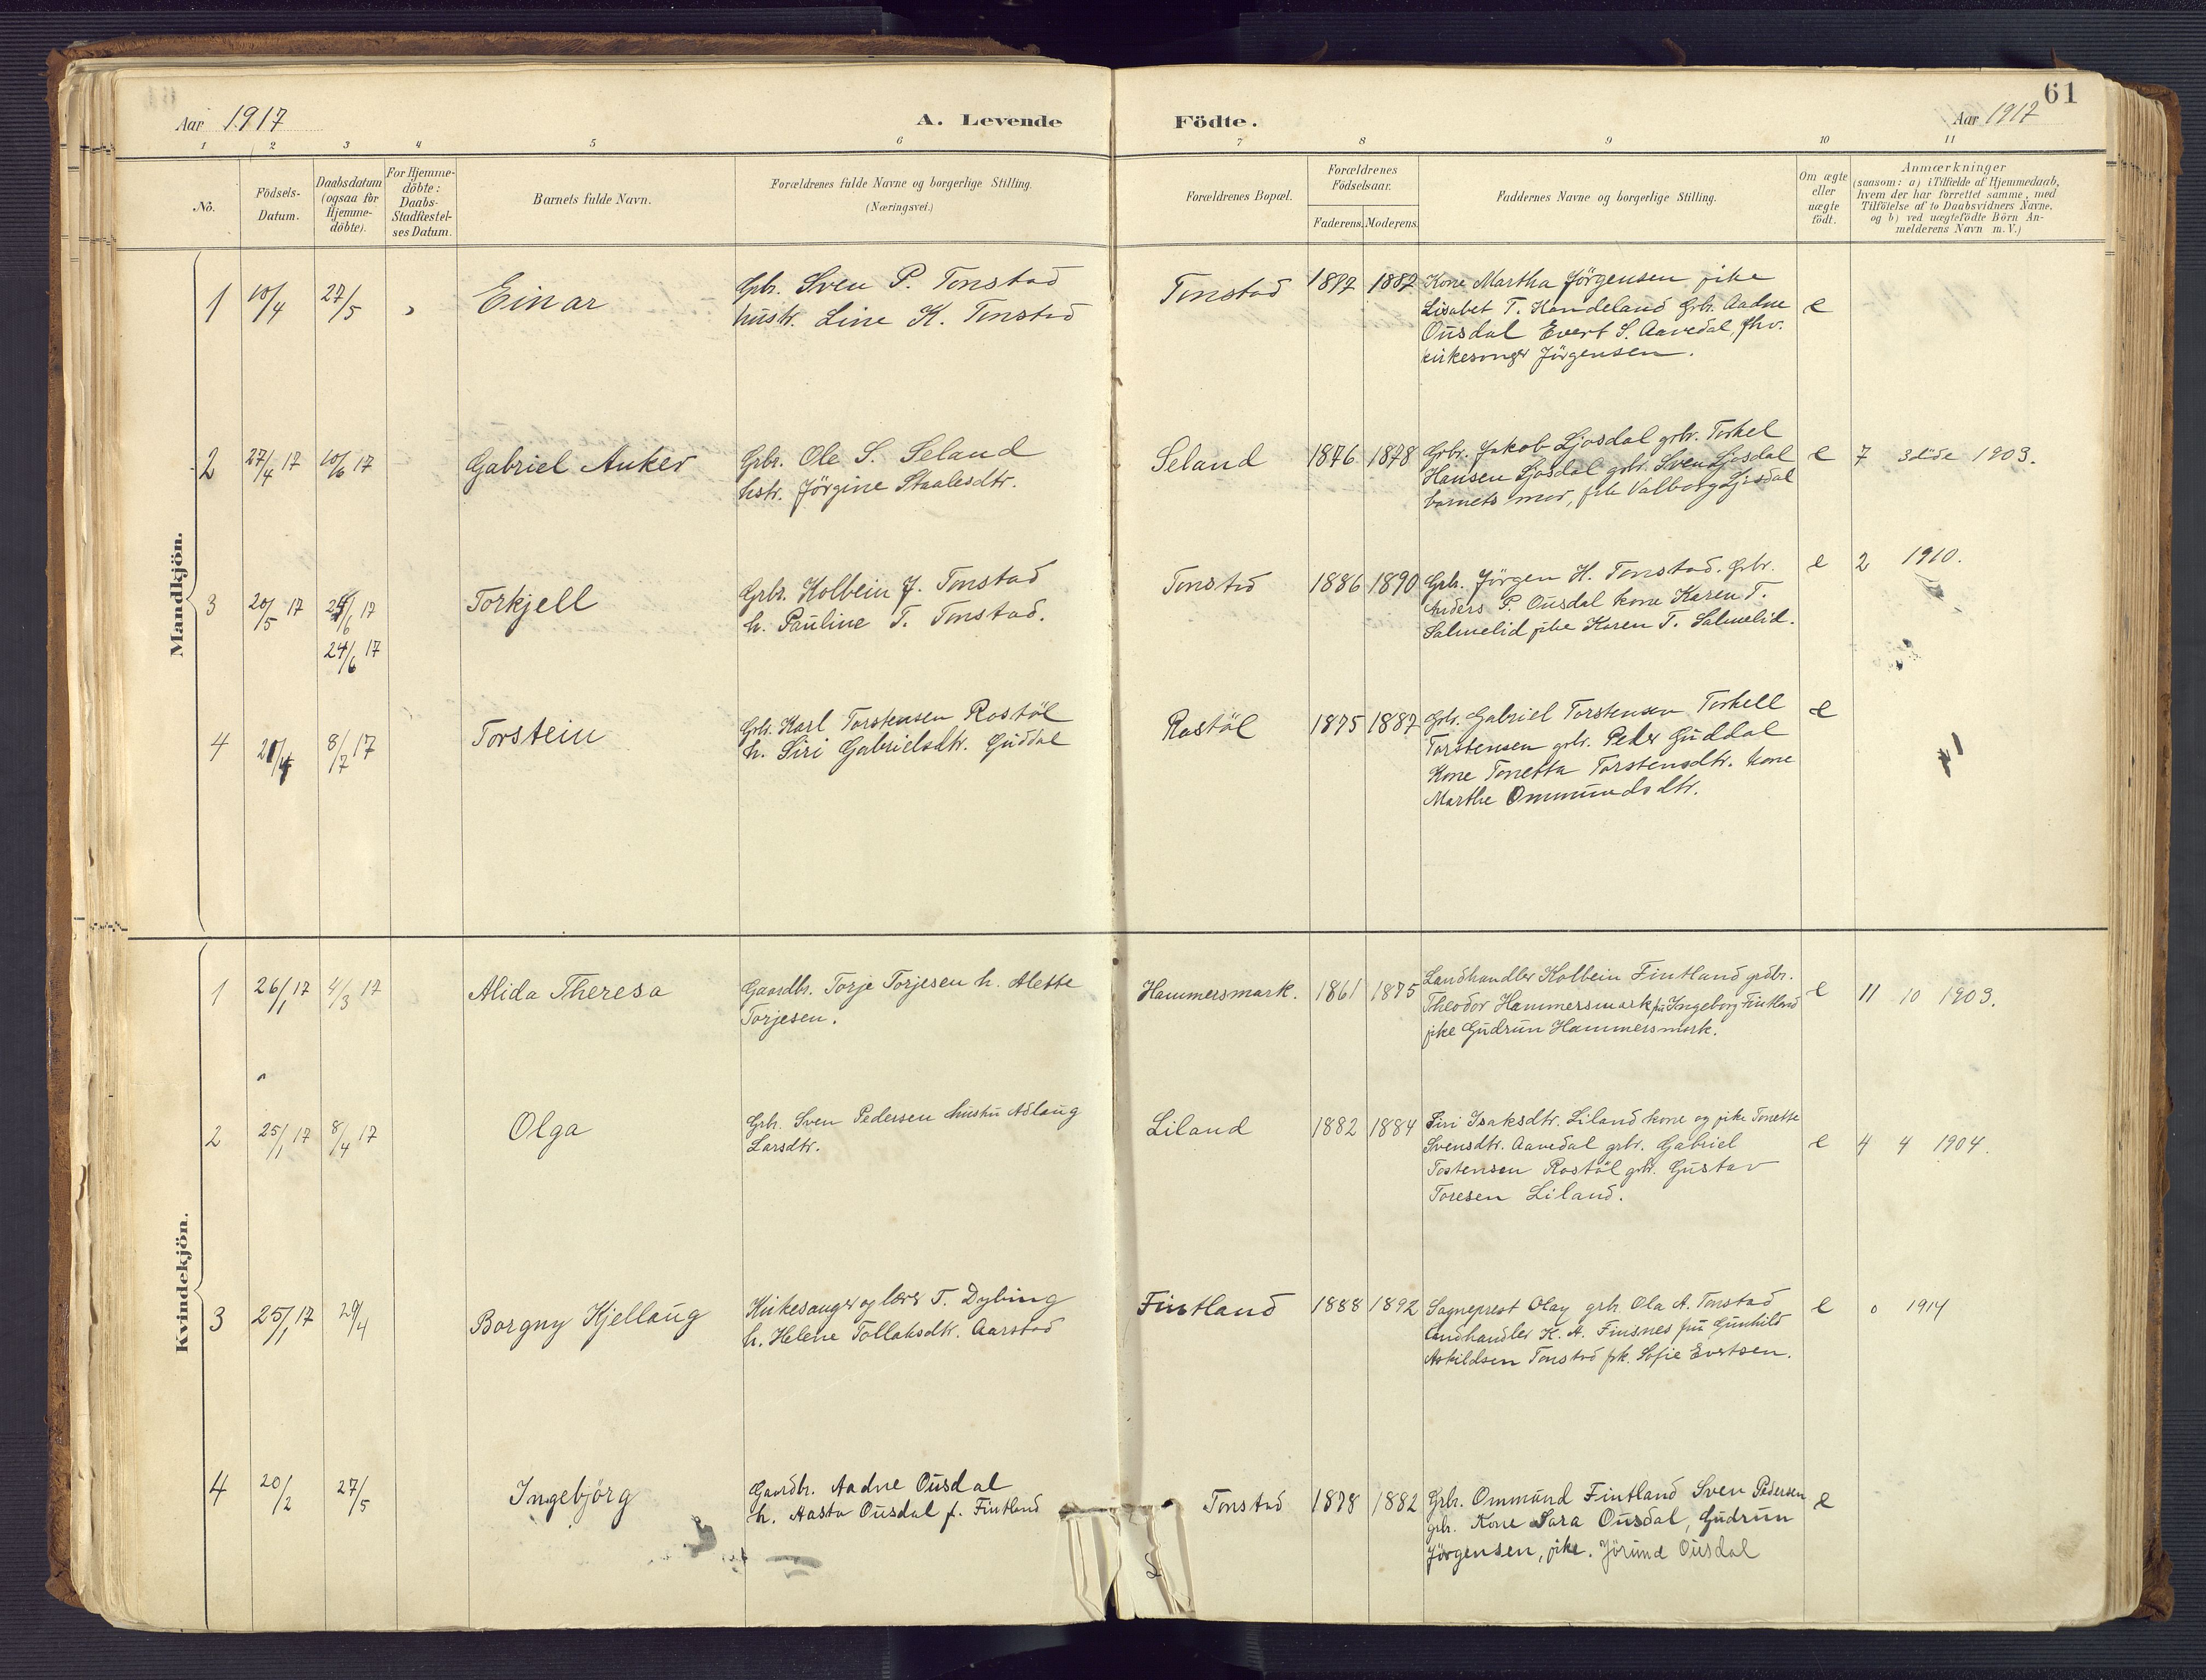 61
Aar 1917
A. Levende
Födte.
Aar 1917
1 2 3 4 5 6 7 8 9 10 11
No.
Födsels-
Datum.
Daabsdatum
(ogsaa for
Hjemme-
döbte).
For Hjemme-
döbte:
Daabs-
Stadfæstel-
ses Datum.
Barnets fulde Navn.
Forældrenes fulde Navne og borgerlige Stilling.
(Næringsvei.)
Forældrenes Bopæl.
Forældrenes
Födselsaar.
Faderens. Moderens.
Faddernes Navne og borgerlige Stilling.
Om ægte
eller
uægte
födt.
Anmærkninger
(saasom: a) i Tilfælde af Hjemmedaab,
hvem der har forrettet samme, med
Tilföielse af to Daabsvidners Navne,
og b) ved uægtefödte Börn An-
melderens Navn m. V.)
Mandkjön.
1 10/4 27/5
Einar
Grb. Sven P. Tonstad
hustr. Line K. Tonstad
Tonstad
1887 1882
Kone Martha Jörgensen pike
Lisabet T. Handeland Grb. Aadne
Ousdal Evert S. Aavedal, fhv.
kirkesanger Jörgensen.
e
2 27/4 17 10/6 17
Gabriel Anker
Grbr. Ole S. Seland
hstr. Jörgine Staalesdtr.
Seland
1876 1878
Grbr. Jakob Ljosdal grbr. Torkel
Hansen Ljosdal grbr. Sven Ljosdal
barnets mor, pike Valborg Ljosdal
e
7 3 döde 1903.
3 20/5 17
24/6 17
Torkjell
Grbr. Kolbein J. Tonstad
h. Pauline T. Tonstad.
Tonstad
1886 1890
Grb. Jörgen H. Tonstad. Grbr.
Anders P. Ousdal kone Karen T.
Salmelid pike Karen T. Salmelid.
e
2 1910.
4 21/4 8/7 17
Torstein
Grb. Karl Torstensen Rostöl
h. Siri Gabrielsdtr. Guddal
Rostöl
1875 1887
Grb. Gabriel Torstensen Torkell
Torstensen grbr. Peder Guddal
Kone Tonetta Torstensdtr. kone
Marthe Ommundsdtr.
e
Kvindekjön.
1 26/1 17 4/3 17
Alida Theresa
Gaardbr. Torje Torjesen h. Alette
Torjesen.
Hammersmark.
1861 1875
Landhandler Kolbein Fintland grdbr.
Theodor Hammersmark fru Ingeborg Fintland
pike Gudrun Hammersmark.
e
11 10 1903.
2 25/1 17 8/4 17
Olga
Grb. Sven Pedersen hustru Adlaug
Larsdtr.
Liland
1882 1884
Siri Isaksdtr. Liland kone og pike Tonette
Svensdtr. Aavedal grbr. Gabriel
Tostensen Rostöl grb. Gustav
Toresen Liland.
e
4 4 1904.
3 25/1 17 29/4
Borgny Kjellaug
Kirkesanger og lærer T. Dybing
h. Helene Tollaksdtr. Aarstad
Fintland
1888 1892
Sogneprest Olay grb. Ola A. Tonstad
landhandler K. A. Finsnes fru Gunhild
Askildsen Tonstad pk. Sofie Evertsen.
e
0 1914
4 20/2 27/5
Ingebjörg
Gaardbr. Aadne Ousdal
h. Aasta Ousdal f. Fintland
Tonstad
1878 1882
Grb. Ommund Fintland Sven Pedersen
grb. Kone Sara Ousdal, Gudrun
Jörgensen, pike. Jörund Ousdal
e